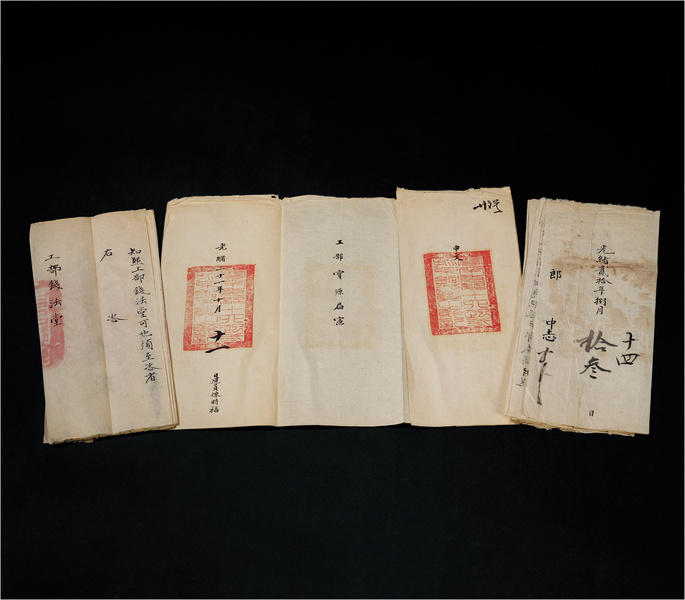 十四
光緒貳拾年捌月拾叁日
郎中志
申文
工部寶源局憲
光緒二十一年十月十一日運員陳時福
知照工部錢法堂可也須至咨者
右咨
工部錢法堂